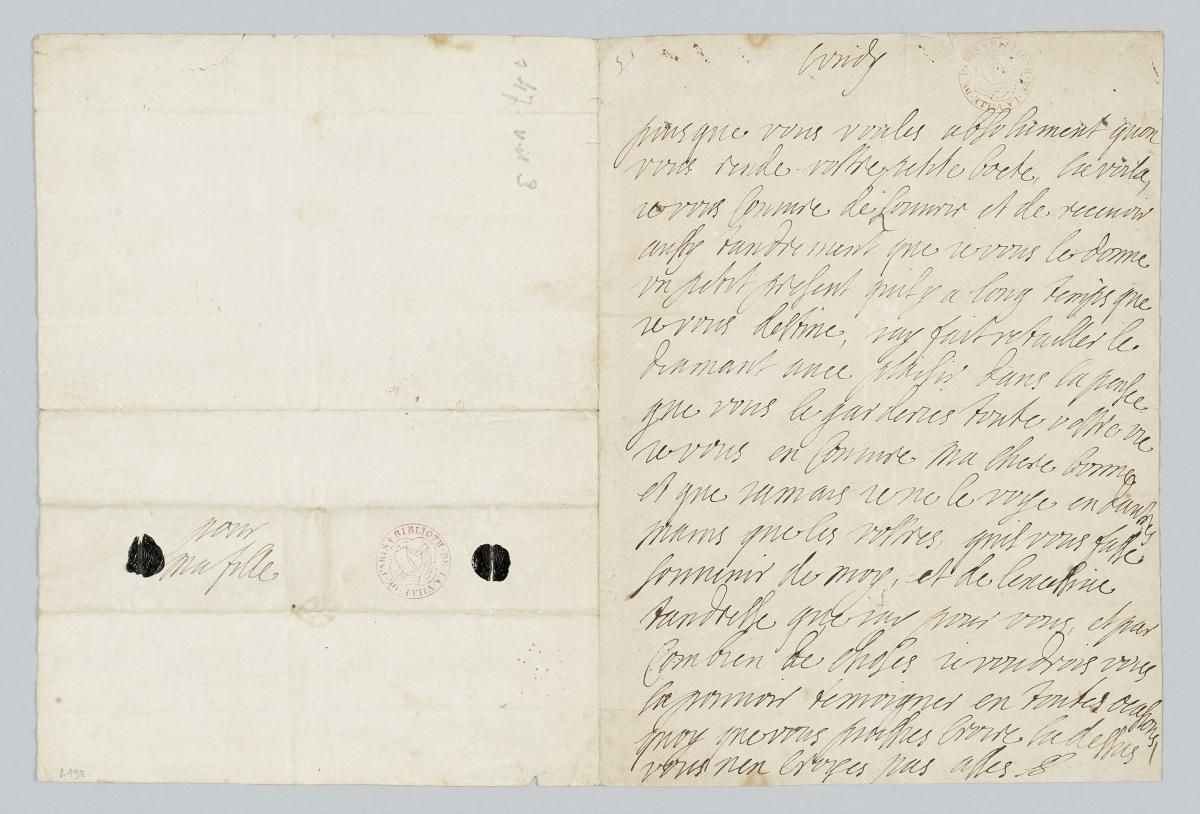 pour
ma fille
BIBLIOTH. DE LA VILLE DE PARIS
A 198
lundy
BIBLIOTH. DE LA VILLE DE PARIS
puisque vous voules absolument quon
vous rende vostre petite boete, la voila,
ie vous coniure de louurir et de receuoir
aussy tandrement que ie vous le donne
vn petit present quil y a long temps que
ie vous destine, iay fait retailler le
diamant auec plaisir dans la pensée
que vous le garderies toute vostre vie
ie vous en coniure ma chere bonne
et que iamais ie ne le voye en dautres
mains que les vostres, quil vous fasse
souuenir de moy, et de lexcessiue
tandresse que iay pour vous, et par
combien de choses ie voudrois vous
la pouuoir temoigner en toutes ocasions
quoy que vous puissies croire la dessus
vous nen croyes pas asses